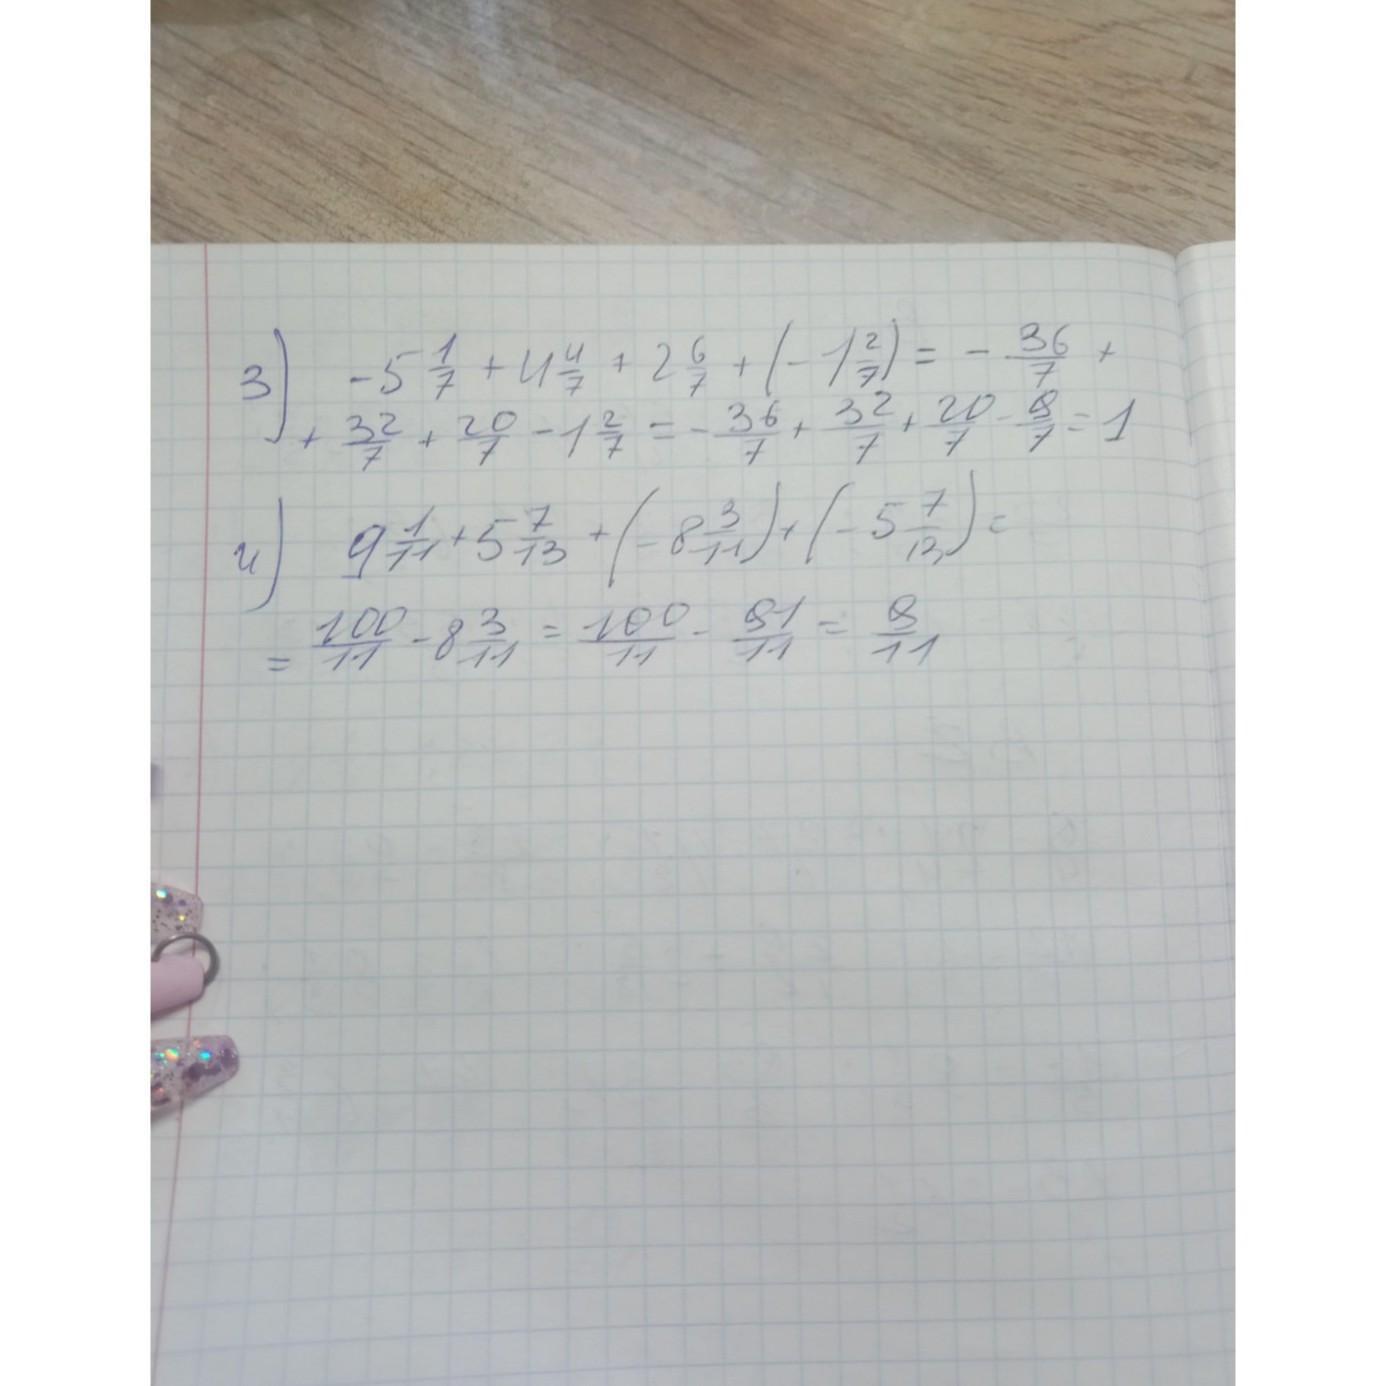 3) -5 1/7 + 4 4/7 + 2 6/7 + (-1 2/7) = - 36/7 +
+ 32/7 + 20/7 - 1 2/7 = - 36/7 + 32/7 + 20/7 - 9/7 = 1
4) 9 1/11 + 5 7/13 + (-8 3/11) + (-5 7/13) =
= 100/11 - 8 3/11 = 100/11 - 91/11 = 9/11